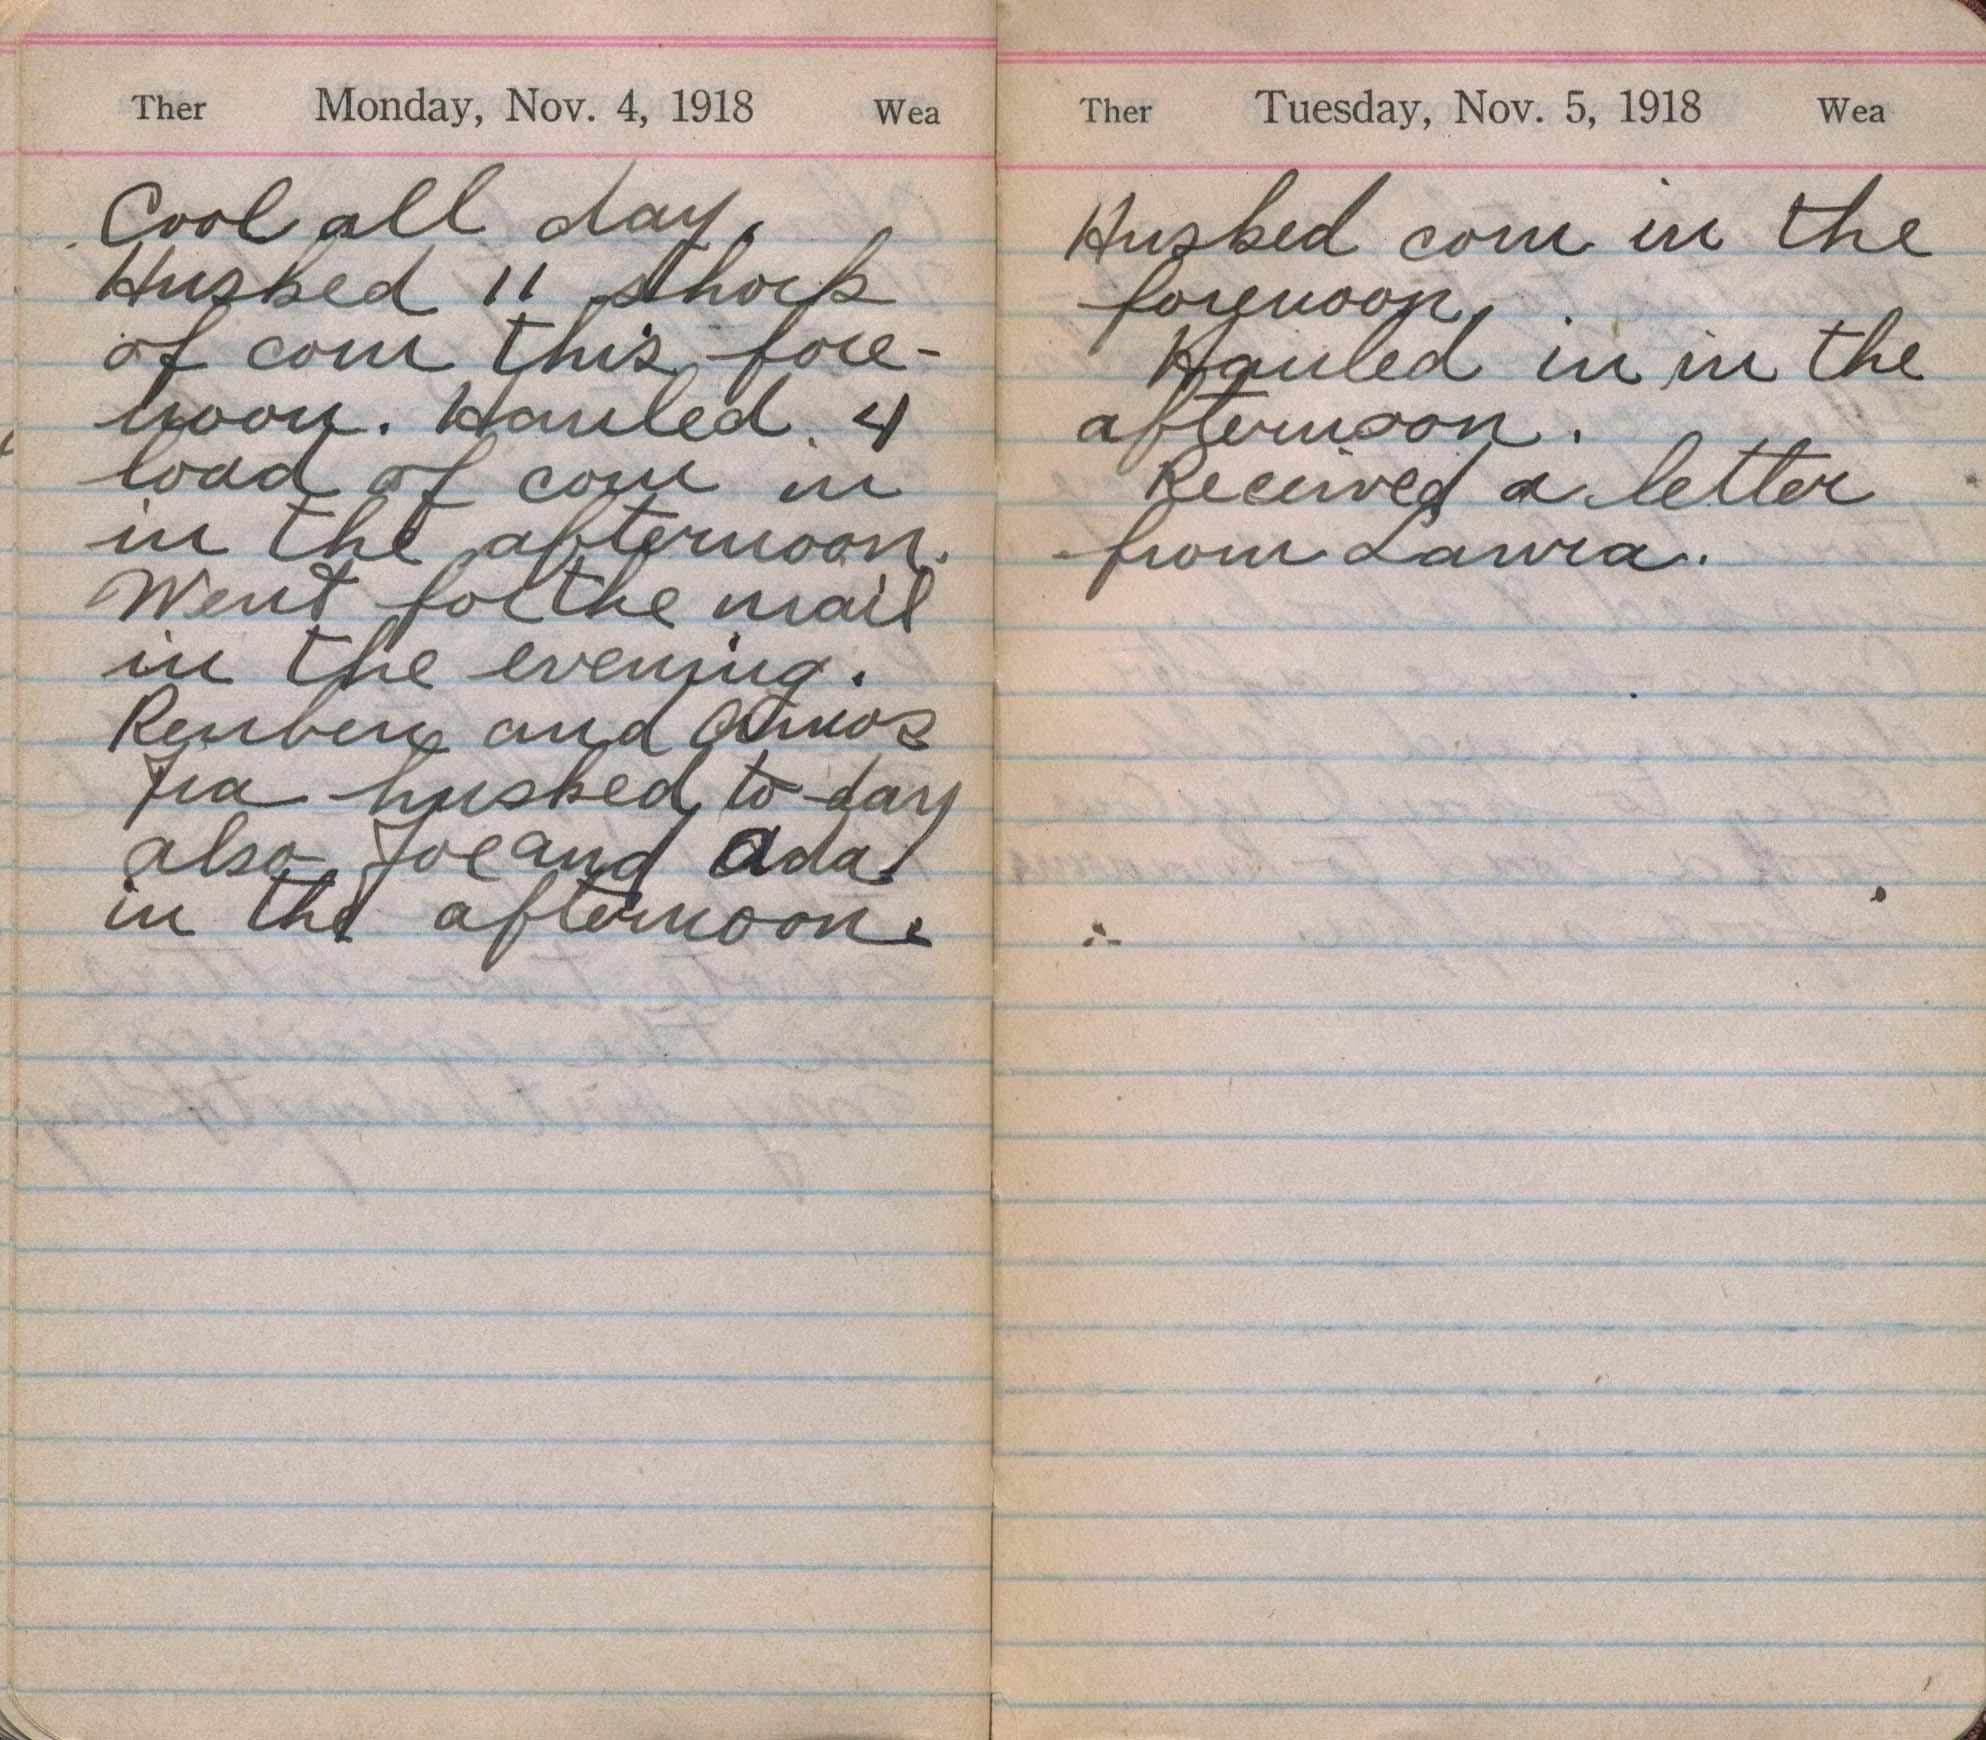 Ther Monday, Nov. 4, 1918 Wea
Cool all day.
Husked 11 shock
of corn this fore-
noon. Hauled 4
load of corn in
in the afternoon.
Went for the mail
in the evening.
Reuben and Amos
Ira husked to-day
also Joe and Ada
in the afternoon.
Ther Tuesday, Nov. 5, 1918 Wea
Husked corn in the
forenoon.
Hauled in in the
afternoon.
Received a letter
from Laura.